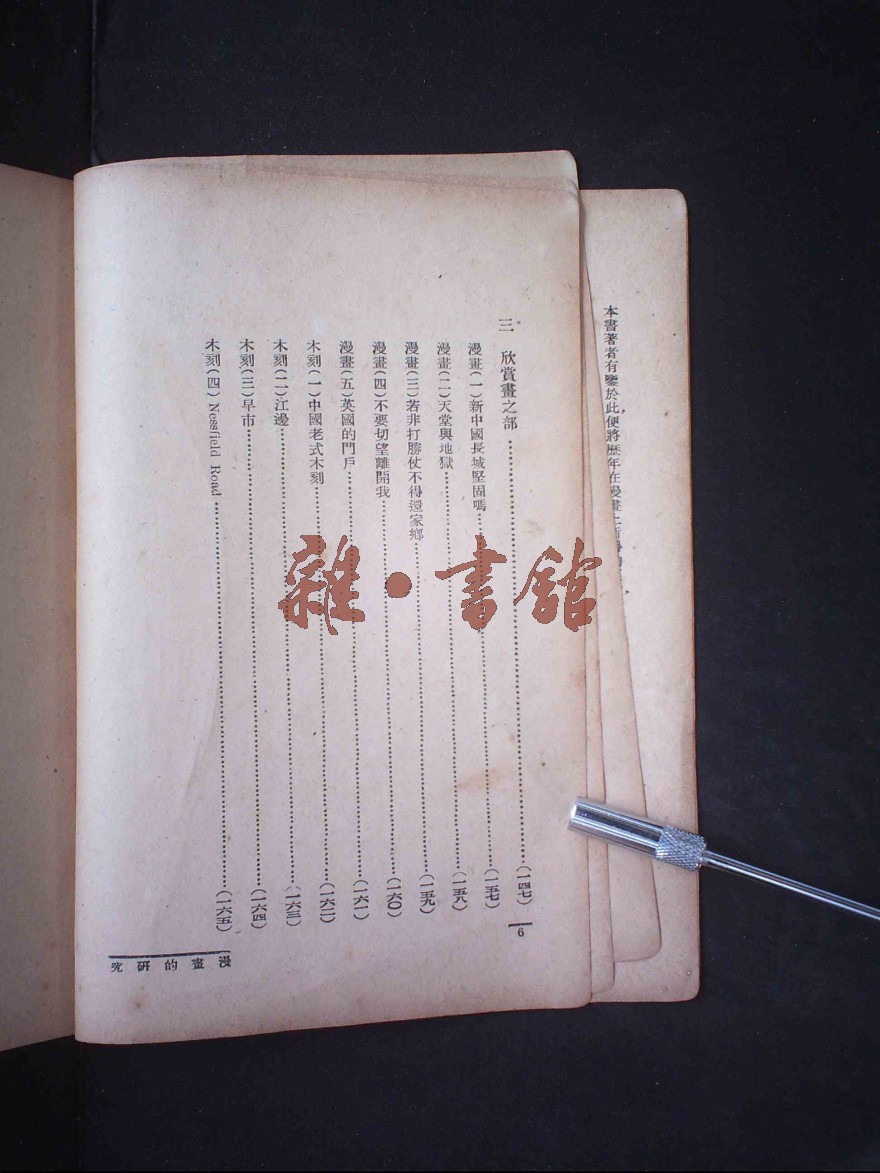 本書著者有鑒於此，便將歷年在漫畫上所
三 欣賞畫之部……(一四七)
漫畫(一)新中國長城堅固嗎……(一五七)
漫畫(二)天堂與地獄……(一五八)
漫畫(三)若非打勝仗不得還家鄉……(一五九)
漫畫(四)不要切望離開我……(一六〇)
漫畫(五)英國的門戶……(一六一)
木刻(一)中國老式木刻……(一六二)
木刻(二)江邊……(一六三)
木刻(三)早市……(一六四)
木刻(四)Nessfield Road……(一六五)
6
漫畫的研究
雜·書館